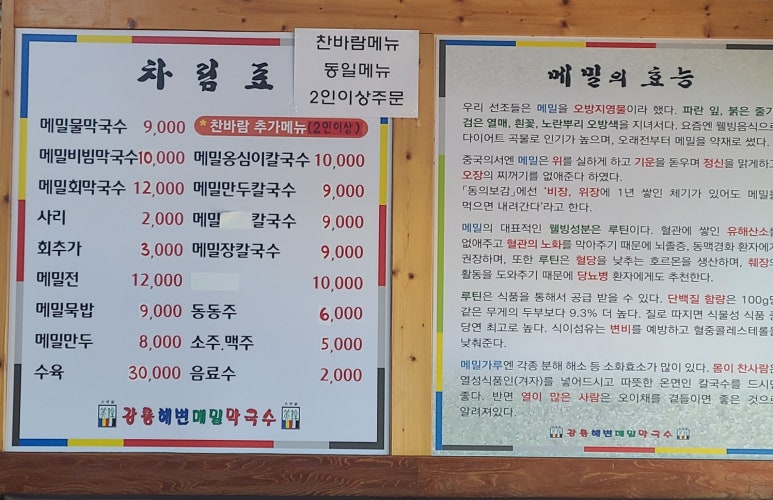 찬바람메뉴
동일메뉴
2인이상주문
차림표
메밀물막국수 9,000
메밀비빔막국수 10,000
메밀회막국수 12,000
사리 2,000
회추가 3,000
메밀전 12,000
메밀묵밥 9,000
메밀만두 8,000
수육 30,000
*찬바람 추가메뉴(2인이상)
메밀옹심이칼국수 10,000
메밀만두칼국수 9,000
메밀 칼국수 9,000
메밀장칼국수 9,000
10,000
동동주 6,000
소주.맥주 5,000
음료수 2,000
강릉해변메밀막국수
메밀의 효능
우리 선조들은 메밀을 오방지영물이라 했다. 파란 잎, 붉은 줄기
검은 열매, 흰꽃, 노란뿌리 오방색을 지녀서다. 요즘엔 웰빙음식으
다이어트 곡물로 인기가 높으며, 오래전부터 메밀을 약재로 썼다.
중국의서엔 메밀은 위를 실하게 하고 기운을 돋우며 정신을 맑게하고
오장의 찌꺼기를 없애준다 하였다.
「동의보감」에선 '비장, 위장에 1년 쌓인 체기가 있어도 메밀을
먹으면 내려간다'라고 한다.
메밀의 대표적인 웰빙성분은 루틴이다. 혈관에 쌓인 유해산소를
없애주고 혈관의 노화를 막아주기 때문에 뇌졸증, 동맥경화 환자에게
권장하며, 또한 루틴은 혈당을 낮추는 호르몬을 생산하며, 췌장의
활동을 도와주기 때문에 당뇨병 환자에게도 추천한다.
루틴은 식품을 통해서 공급 받을 수 있다. 단백질 함량은 100g당
같은 무게의 두부보다 9.3% 더 높다. 질로 따지면 식물성 식품 중
당연 최고로 높다. 식이섬유는 변비를 예방하고 혈중콜레스테롤을
낮춰준다.
메밀가루엔 각종 분해 해소 등 소화효소가 많이 있다. 몸이 찬사람은
열성식품인(겨자)를 넣어드시고 따뜻한 온면인 칼국수를 드시면
좋다. 반면 열이 많은 사람은 오이채를 곁들이면 좋은 것으로
알려져있다.
강릉해변메밀막국수